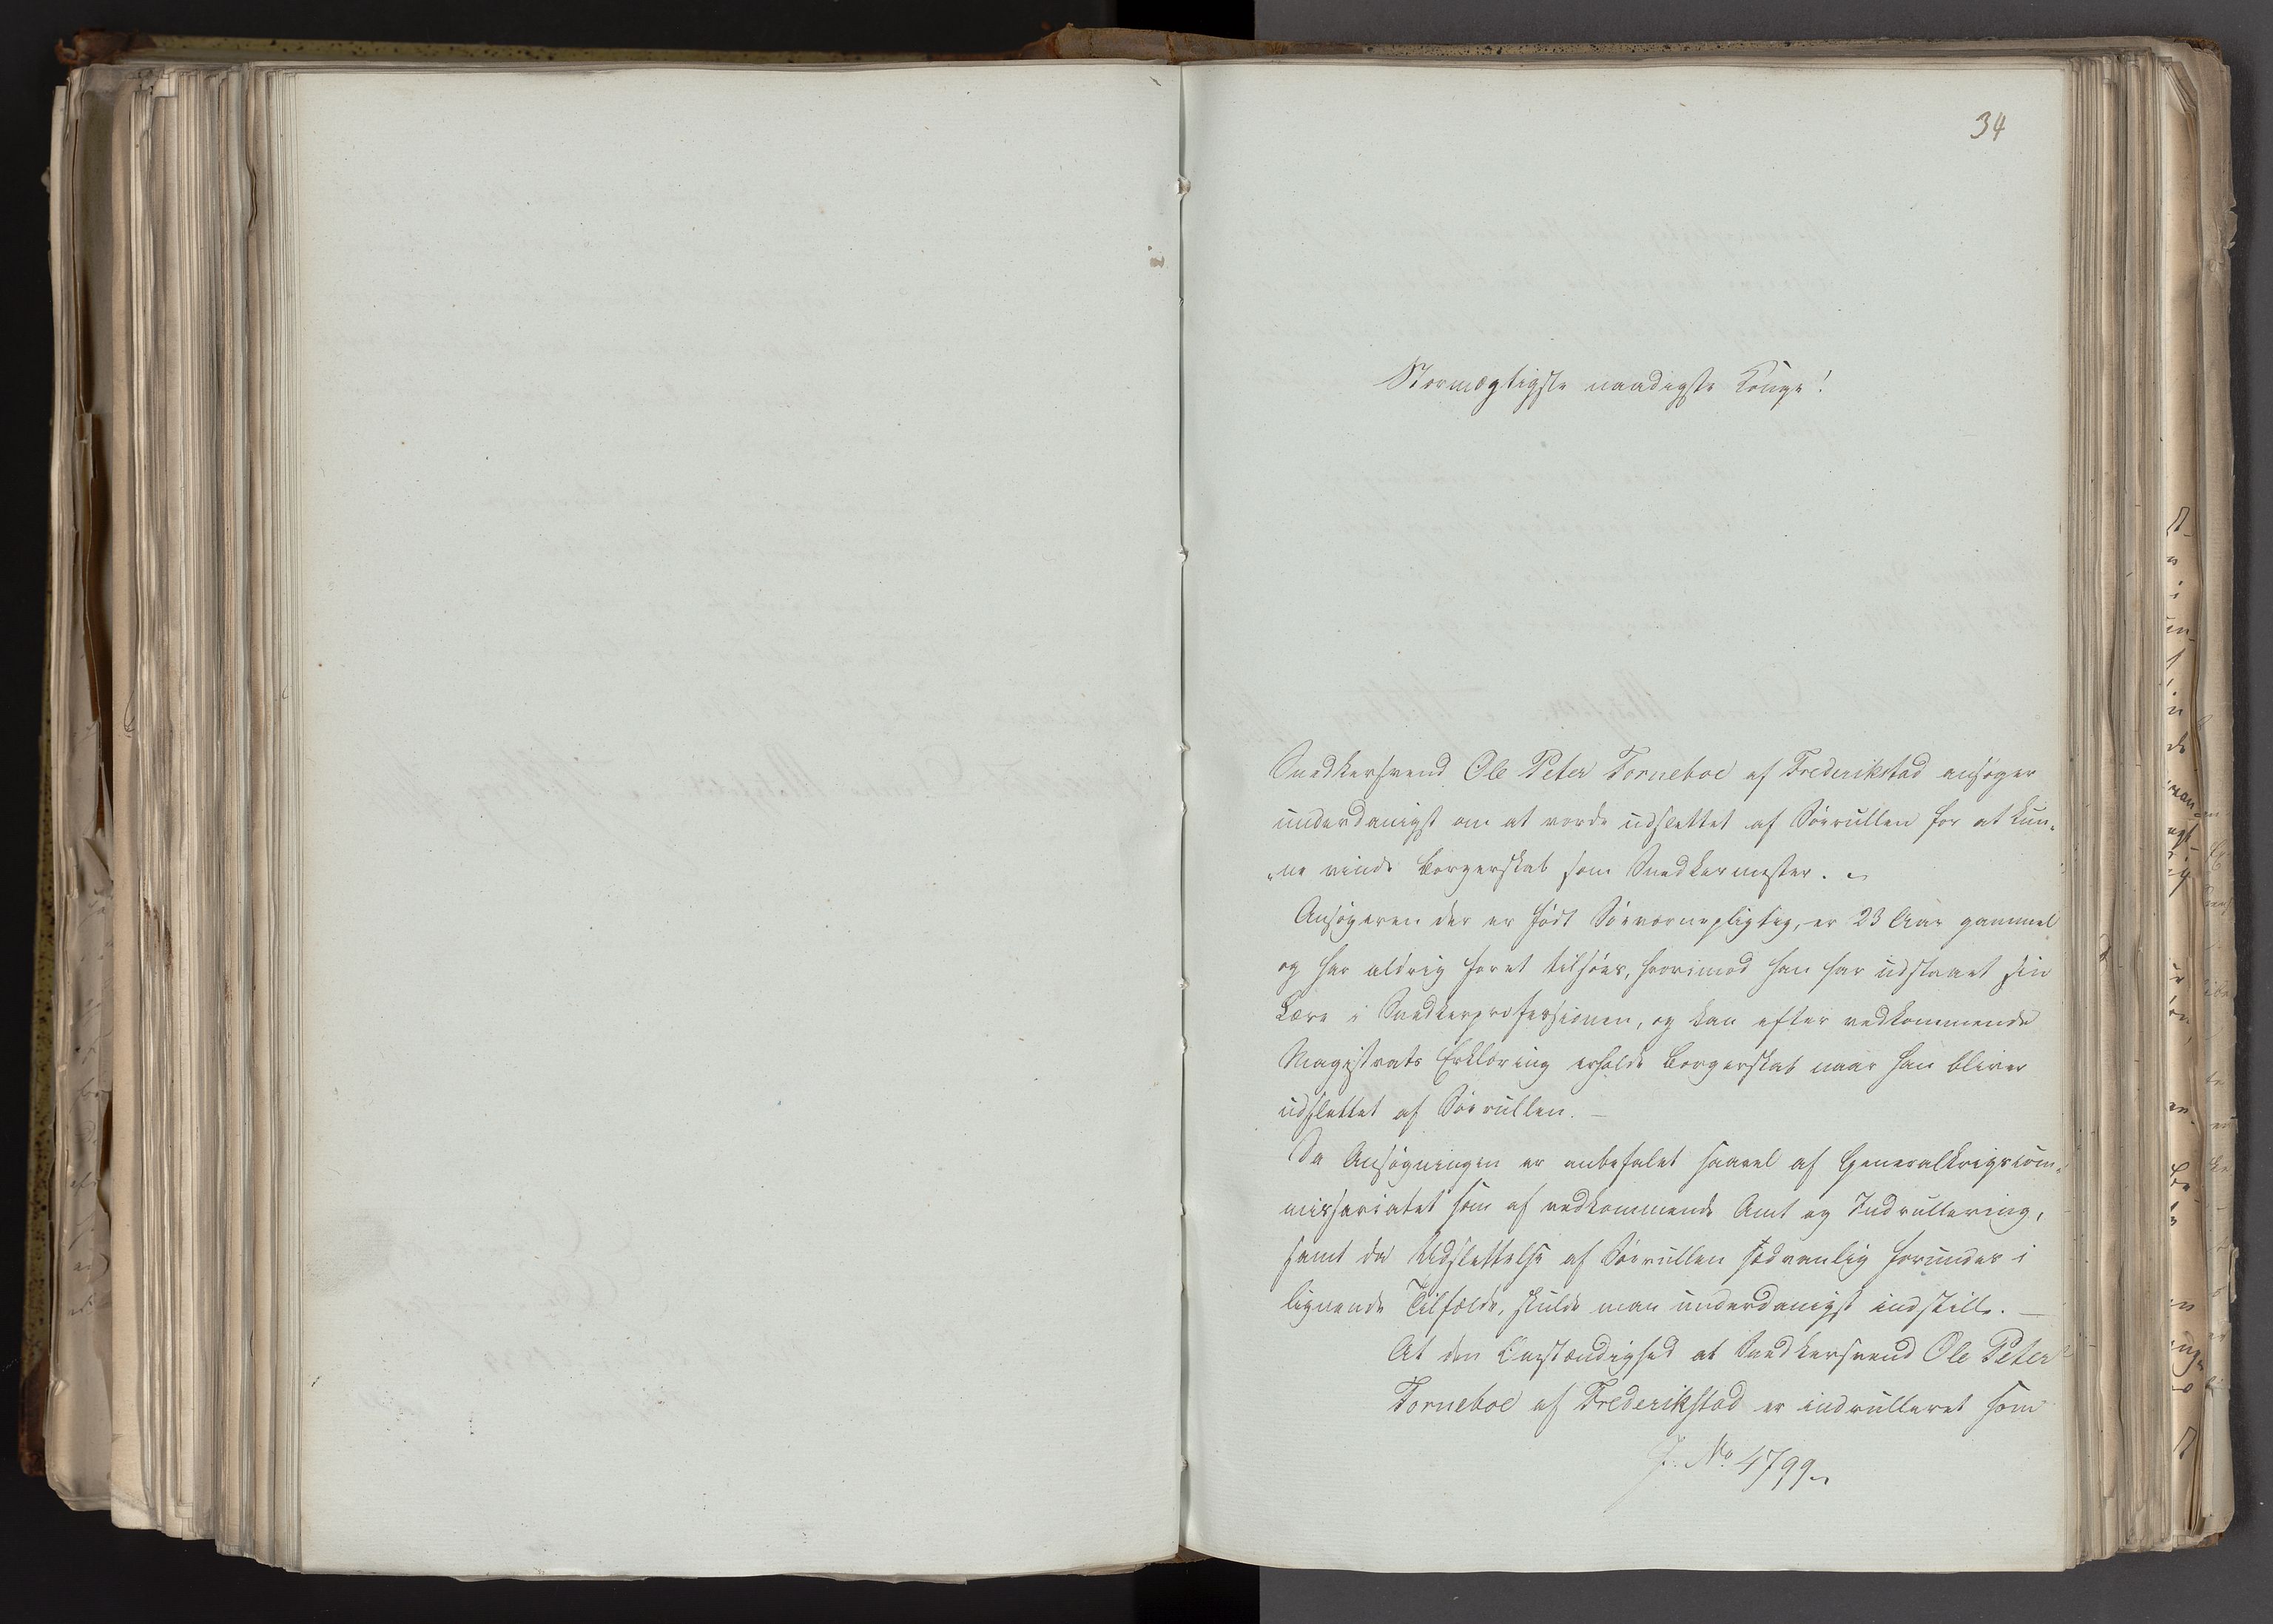 34
Stormægtigste naadigste Konge!
Snedkersvend Ole Peter Torneboe af Frederikstad ansøger
underdanigst om at vorde udslettet af Søerullen for at kun„
„ne vinde Borgerskab som Snedkermester.
Ansøgeren der er født Søeværnepligtig, er 23 Aar gammel
og har aldrig faret tilsøes, hvorimod han har udstaaet sin
Lære i Snedkerprofessionen, og kan efter vedkommende
Magistrats Erklæring erholde Borgerskab naar han bliver
udslettet af Søerullen. —
Da Ansøgningen er anbefalet saavel af Generalkrigscom„
missariatet som af vedkommende Amt og Indrullering,
samt da Udslettelse af Søerullen sædvanlig forundes i
lignende Tilfælde, skulde man underdanigst indstille. —
At den Omstændighed at Snedkersvend Ole Peter
Torneboe af Frederikstad er indrulleret som
J. No 4799